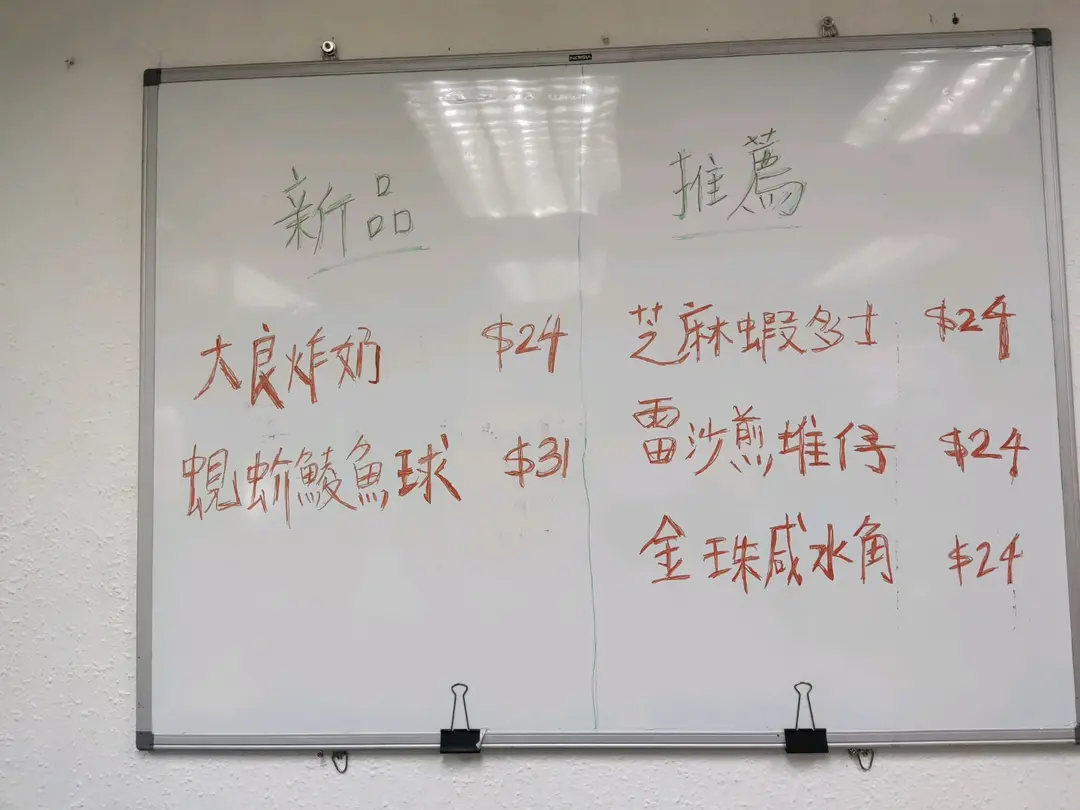 新品
大良炸奶 $24
蜆蚧鯪魚球 $31
推薦
芝麻蝦多士 $24
雷沙煎堆仔 $24
金珠咸水角 $24